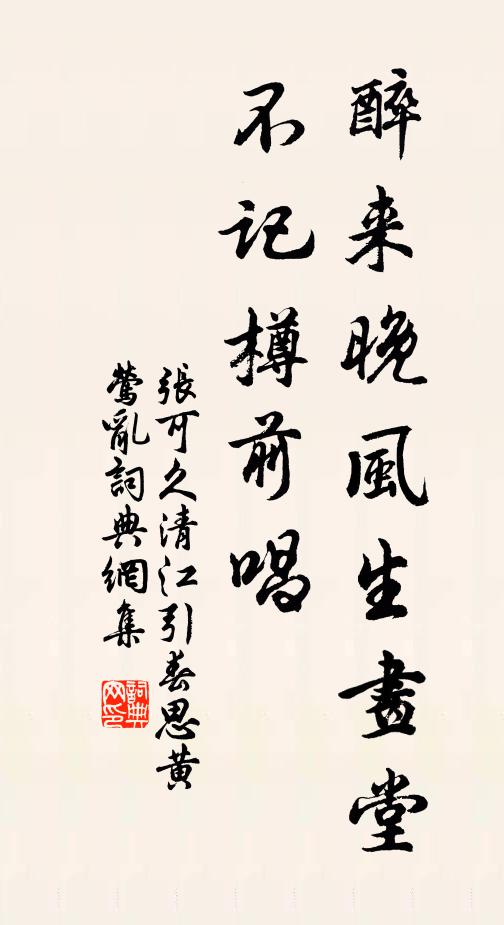 醉来晚風生畫堂
不记樽前唱
張可久清江引春思黄
鶯亂詞典網集
詞典
网印